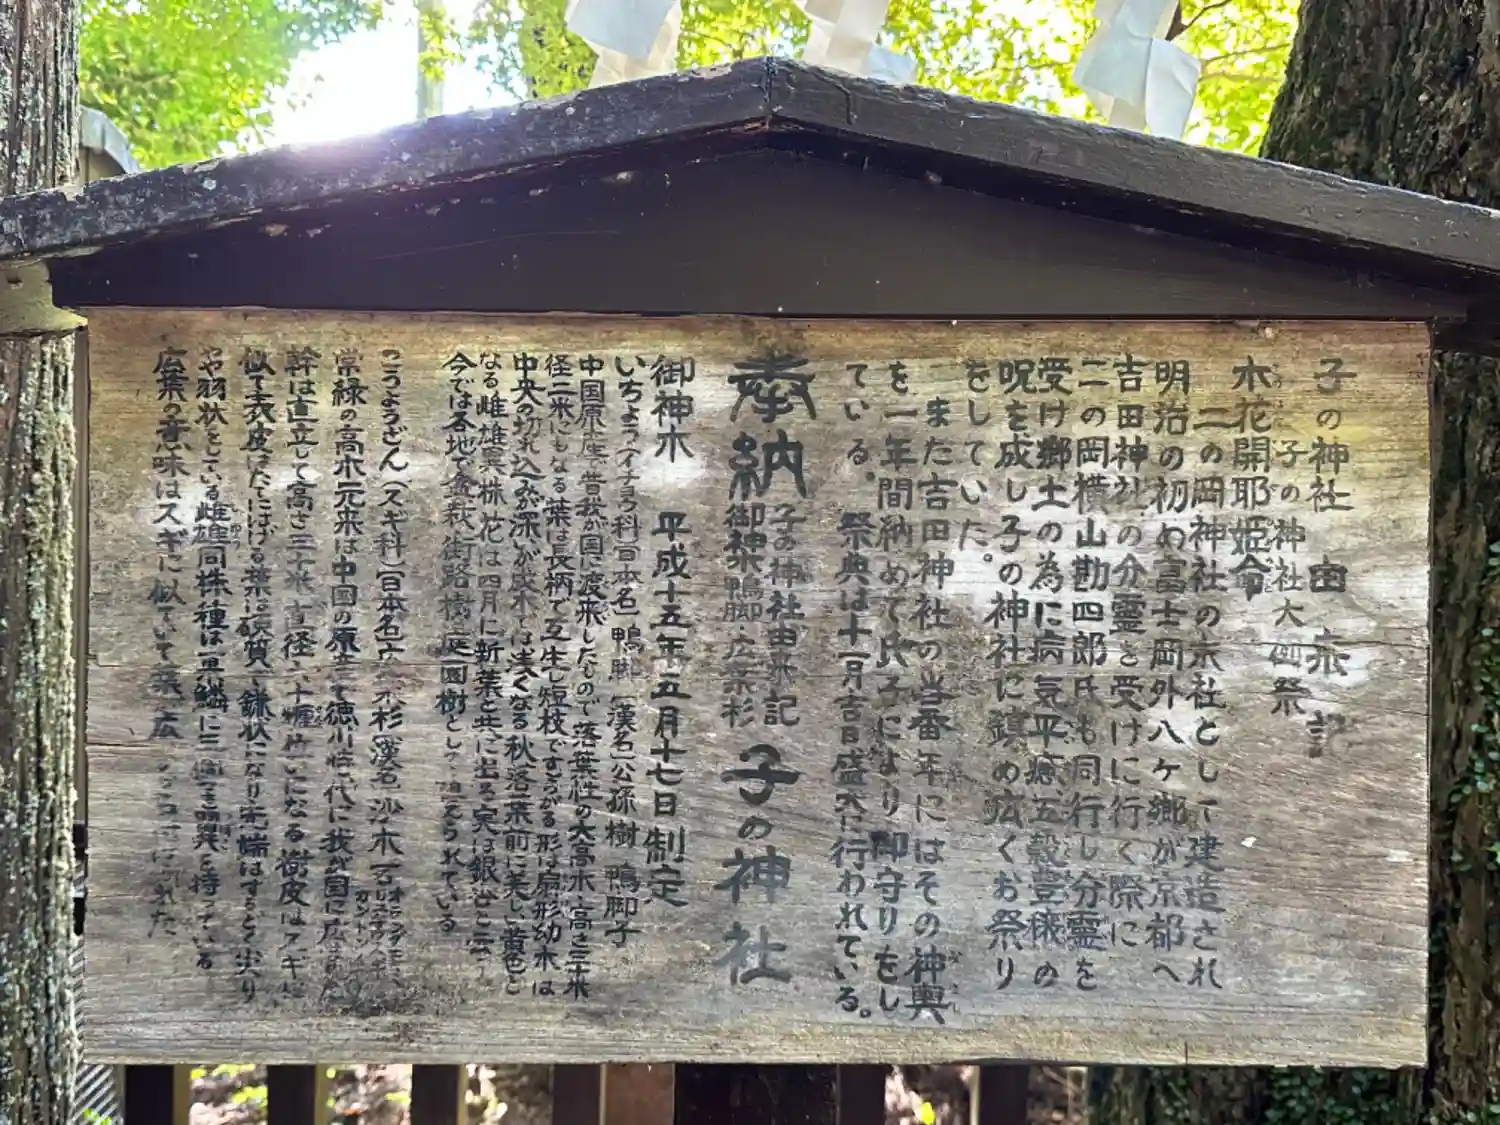 子の神社 由来記
子の神社大例祭
木花開耶姫命
二の岡神社の末社として建造され
明治の初め富士岡外八ヶ郷が京都へ
吉田神社の分霊を受けに行く際に
二の岡横山勘四郎氏も同行し分霊を
受け郷土の為に病気平癒五穀豊穣の
呪を成し子の神社に鎮め広くお祭り
をしていた。
また吉田神社の当番年にはその神輿
を一年間納めて氏子により御守りをし
ている。祭典は十一月吉日盛大に行われている。
奉納 子の神社由来記
御神木鴨脚・広葉杉 子の神社
御神木 平成十五年五月十七日制定
いちょう(イチョウ科)[日本名]鴨脚[漢名]公孫樹 鴨脚子
中国原産、昔我が国に渡来したもので落葉性の大高木、高さ三十米
径二米にもなる葉は長柄で互生し短枝ですらがる形は扇形幼木は
中央の切れ込みが深いが成木では浅くなる秋落葉前に美しい黄色と
なる雌雄異株、花は四月に新葉と共に出る実は銀杏と云う
今では各地で盆栽、街路樹、庭園樹として植えられている
こうようざん(スギ科)[日本名]広葉杉[漢名]沙木
常緑の高木元来は中国の原産で徳川時代に我が国に
幹は直立して高さ三十米、直径八十糎位いになる樹皮はスギに
似て表皮はたてにはげる葉は硬質、鎌状になり先端はするどく尖り
や羽状をしている雌雄同株種は果鱗に三個づつ翼を持っている
広葉の意味はスギに似ていて葉が広い